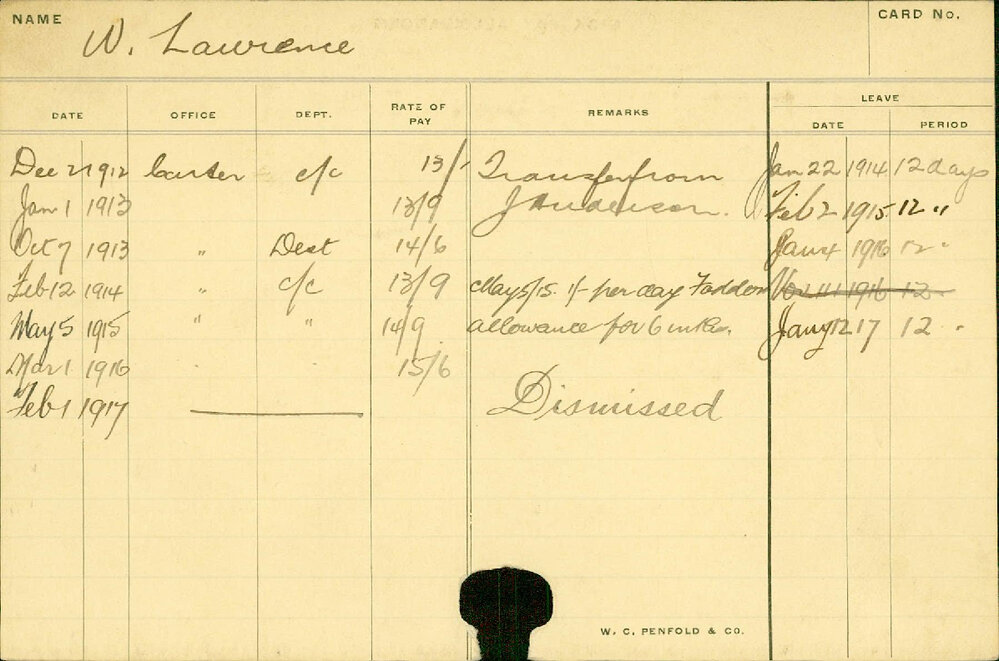 NAME
W. Lawrence
CARD No.
DATE OFFICE DEPT. RATE OF PAY REMARKS LEAVE
DATE PERIOD
Dec 21 1912 Carter c/c 13/- Transfer from Jan 22 1914 12 days
Jan 1 1913 13/9 J Anderson. Feb 2 1915 12 "
Oct 7 1913 " Dest 14/6 Jan 4 1916 12 "
Feb 12 1914 " c/c 13/9 May 5/15. 1/- per day Fodder Nov 11 1916 12
May 5 1915 " " 14/9 allowance for 6 mths. Jany 12 17 12 "
Mar 1 1916 " " 15/6
Feb 1 1917 Dismissed
W. C. PENFOLD & CO.